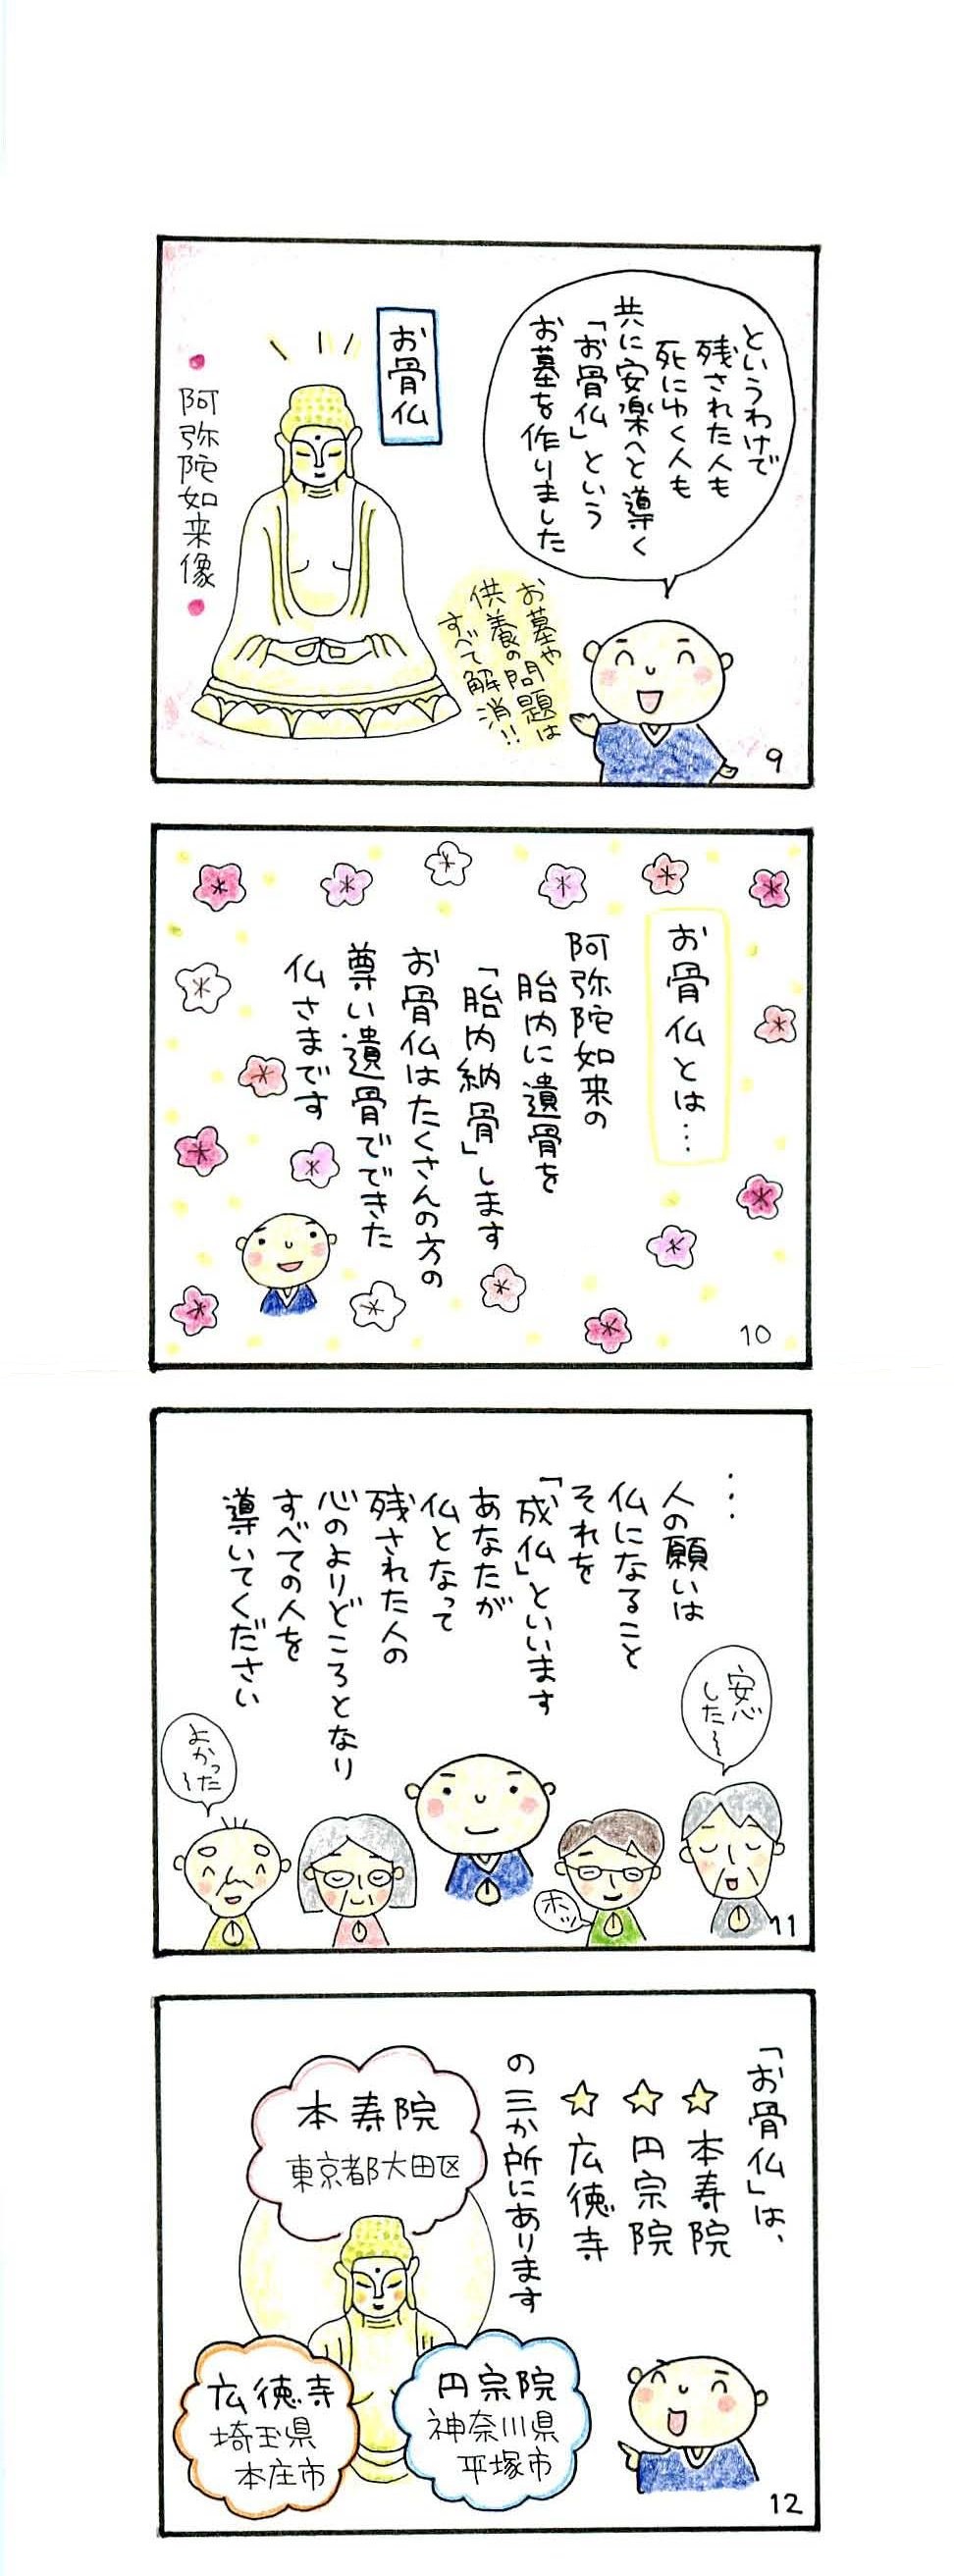 というわけで
残された人も
死にゆく人も
共に安楽へと導く
「お骨仏」という
お墓を作りました
お骨仏
阿弥陀如来像
お墓や
供養の問題は
すべて解消!!
9
お骨仏とは…
阿弥陀如来の
胎内に遺骨を
「胎内納骨」します
お骨仏はたくさんの方の
尊い遺骨でできた
仏さまです
10
…
人の願いは
仏になること
それを
「成仏」といいます
あなたが
仏となって
残された人の
心のよりどころとなり
すべての人を
導いてください
安心
した〜
ホッ
よかった
〜
11
「お骨仏」は、
☆本寿院
☆円宗院
☆広徳寺
の三か所にあります
本寿院
東京都大田区
円宗院
神奈川県
平塚市
広徳寺
埼玉県
本庄市
12